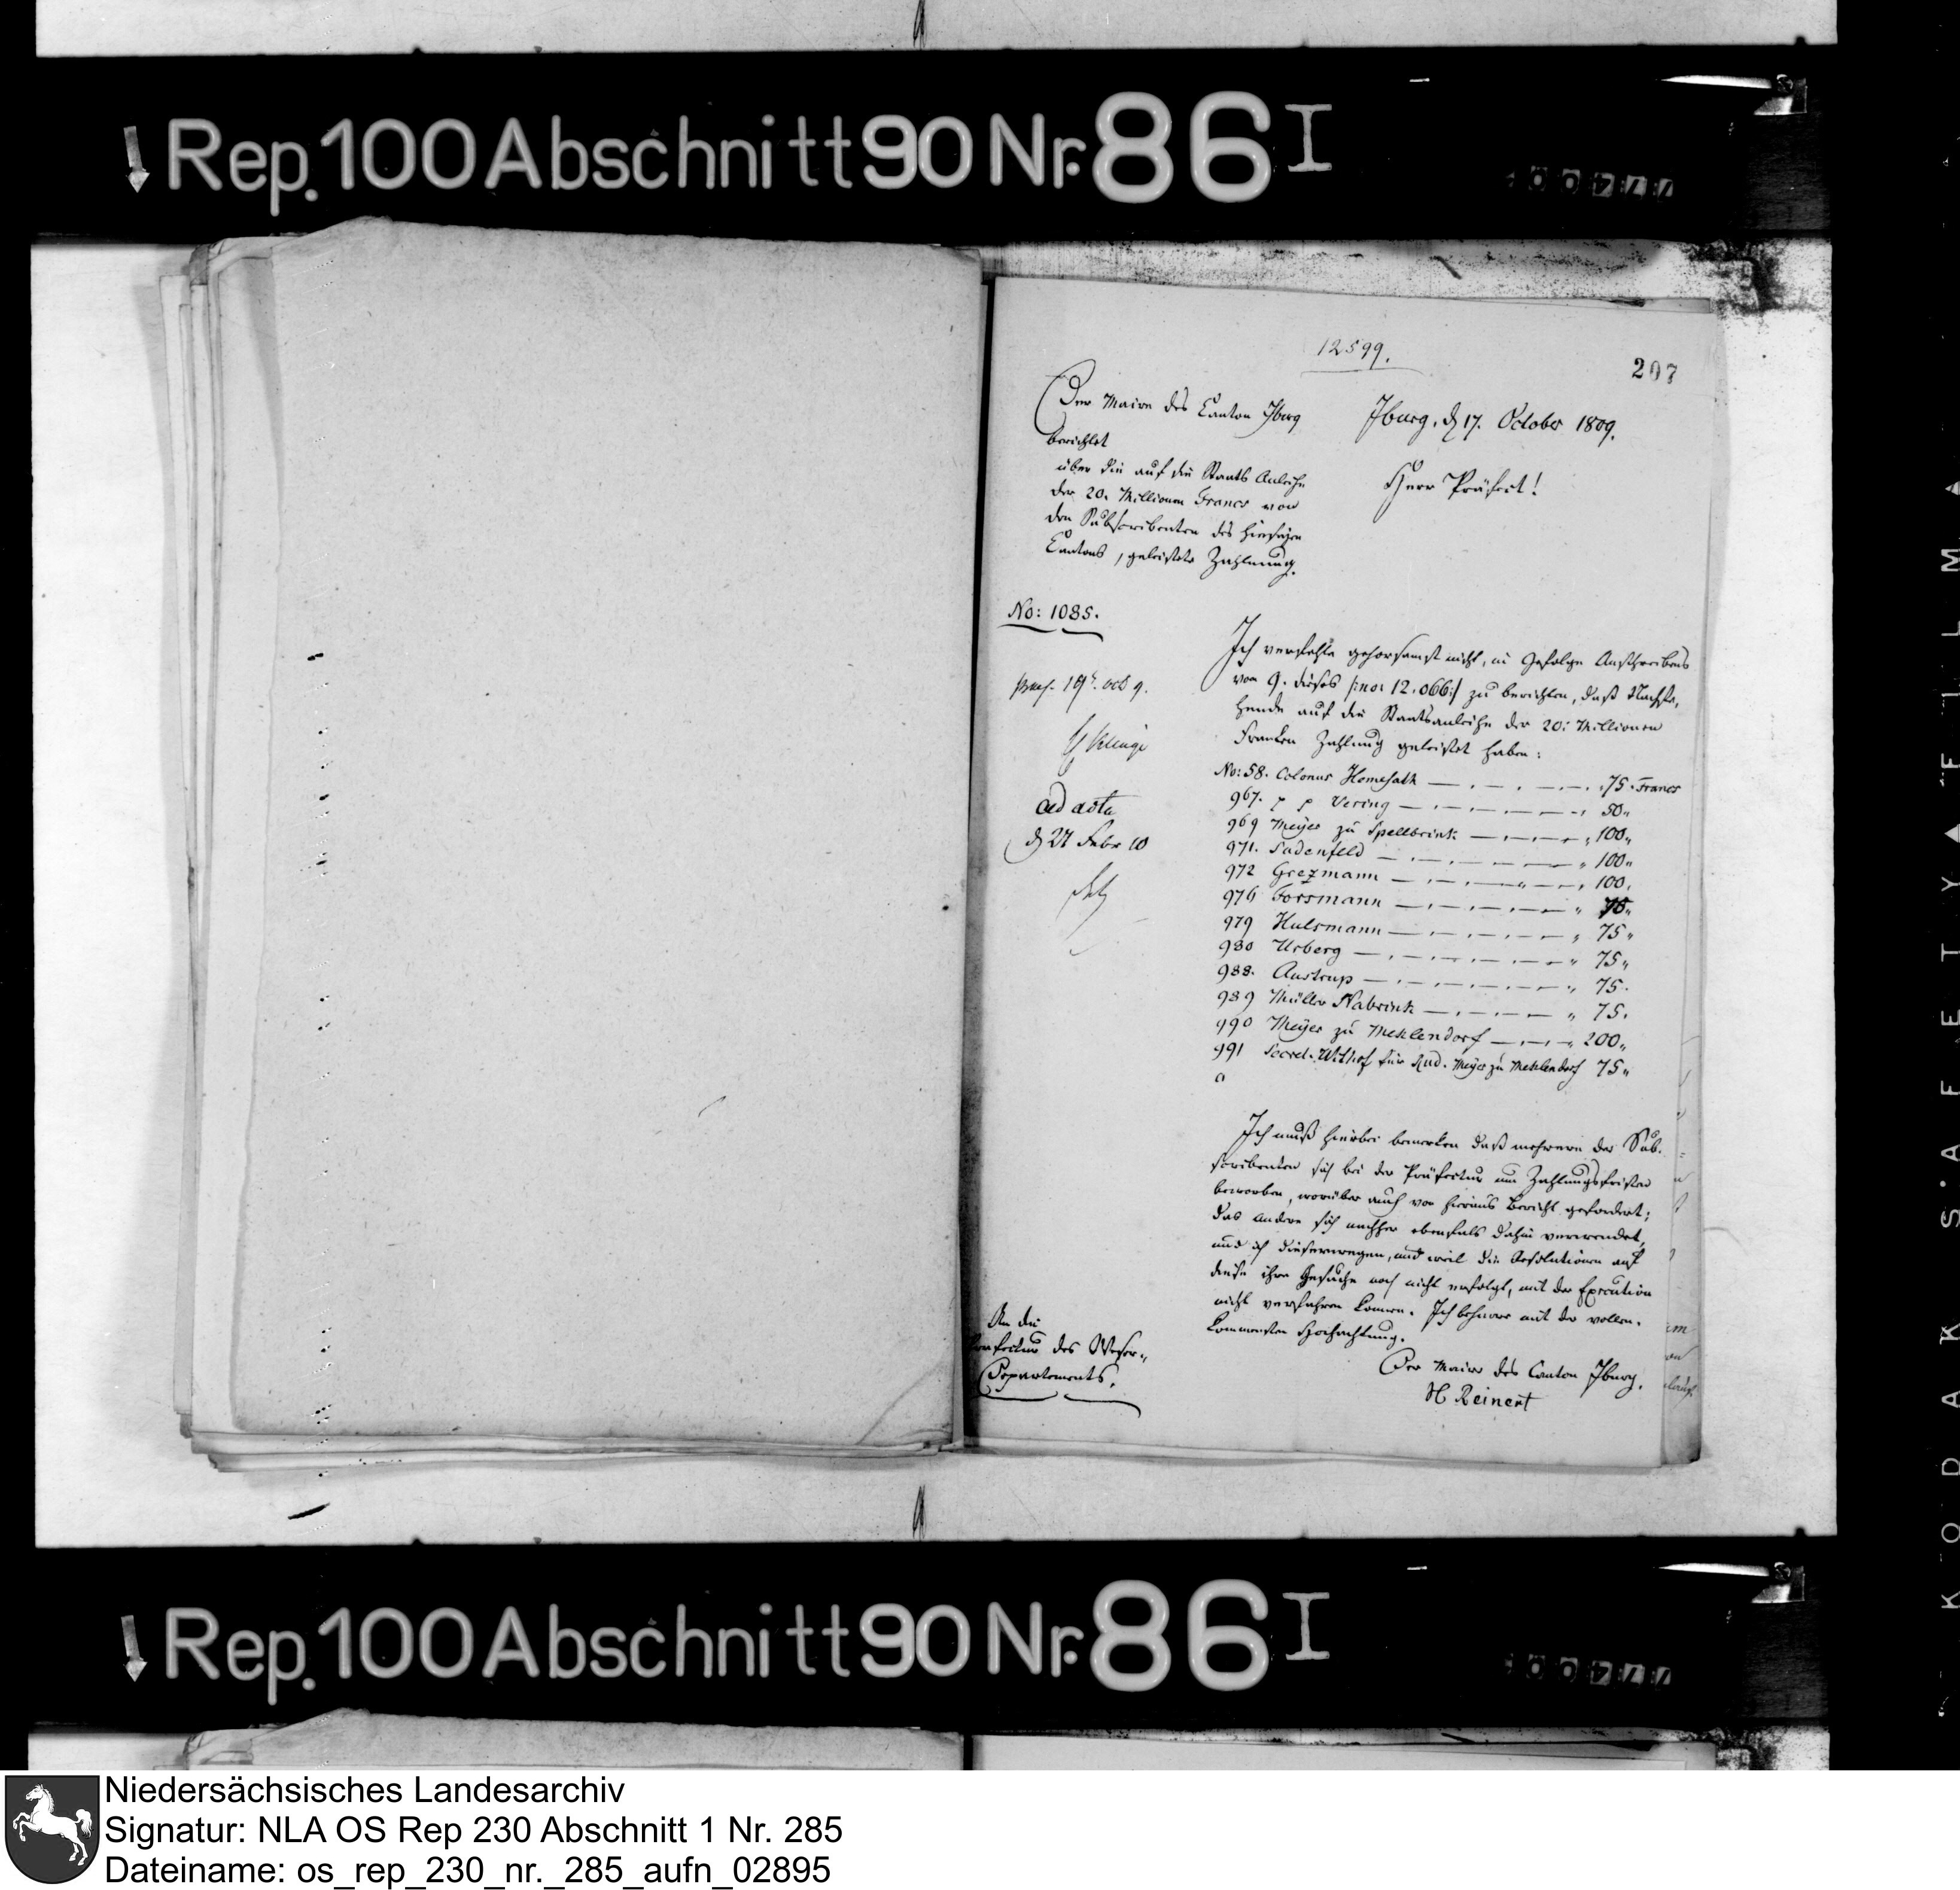 Rep. 100 Abschnitt 90 Nr. 86 I
12599.
207
Der Maire des Canton Iburg
berichtet
über die auf die Staats Anleihe
der 20. Millionen Francs von
den Subscribenten des hiesigen
Cantons, geleistete Zahlung.
Iburg, d 17. October 1809.
Herr Präfect!
No: 1085.
Ich verfehle gehorsamst nicht, in Gefolge Ausschreibens
vom 9. dieses /: no: 12.066 :/ zu berichten, daß Nachste,
hende auf die Staatsanleihe der 20: Millionen
Franken Zahlung geleistet haben:
praes. 19t. oct 9.
ad acta
d 27 Febr 10
No: 58. Colonus Homesath 75. Francs
967. Vering 50"
969 Meyer zu Spellbrink 100"
971. Sudenfeld 100"
972 Grezmann 100"
976 Forsmann
979 Hulsmann 75"
980 Urberg 75"
988. Austrup 75.
989 Müller Nabrink 75.
990 Meyer zu Meklendorf 200"
991 Secret. Withof für Rud. Meyer zu Meklendorf 75"
Ich muß hierbei bemerken daß mehrere der Sub-
scribenten sich bei der Präfectur um Zahlungsfristen
beworben, worüber auch von hieraus Bericht gefordert;
das andere sich nachher ebenfals dahin verwendet,
und ich dieserwegen, und weil die Resolutionen auf
diese ihre Gesuche noch nicht erfolgt, mit der Execution
nicht verfahren können. Ich beharre mit der vollen-
kommensten Hochachtung.
Der Maire des Canton Iburg.
H Reinert
An die
Praefectur des Weser-
Departements.
Rep. 100 Abschnitt 90 Nr. 86 I
KODAK SAFETY FILM
Niedersächsisches Landesarchiv
Signatur: NLA OS Rep 230 Abschnitt 1 Nr. 285
Dateiname: os_rep_230_nr._285_aufn_02895